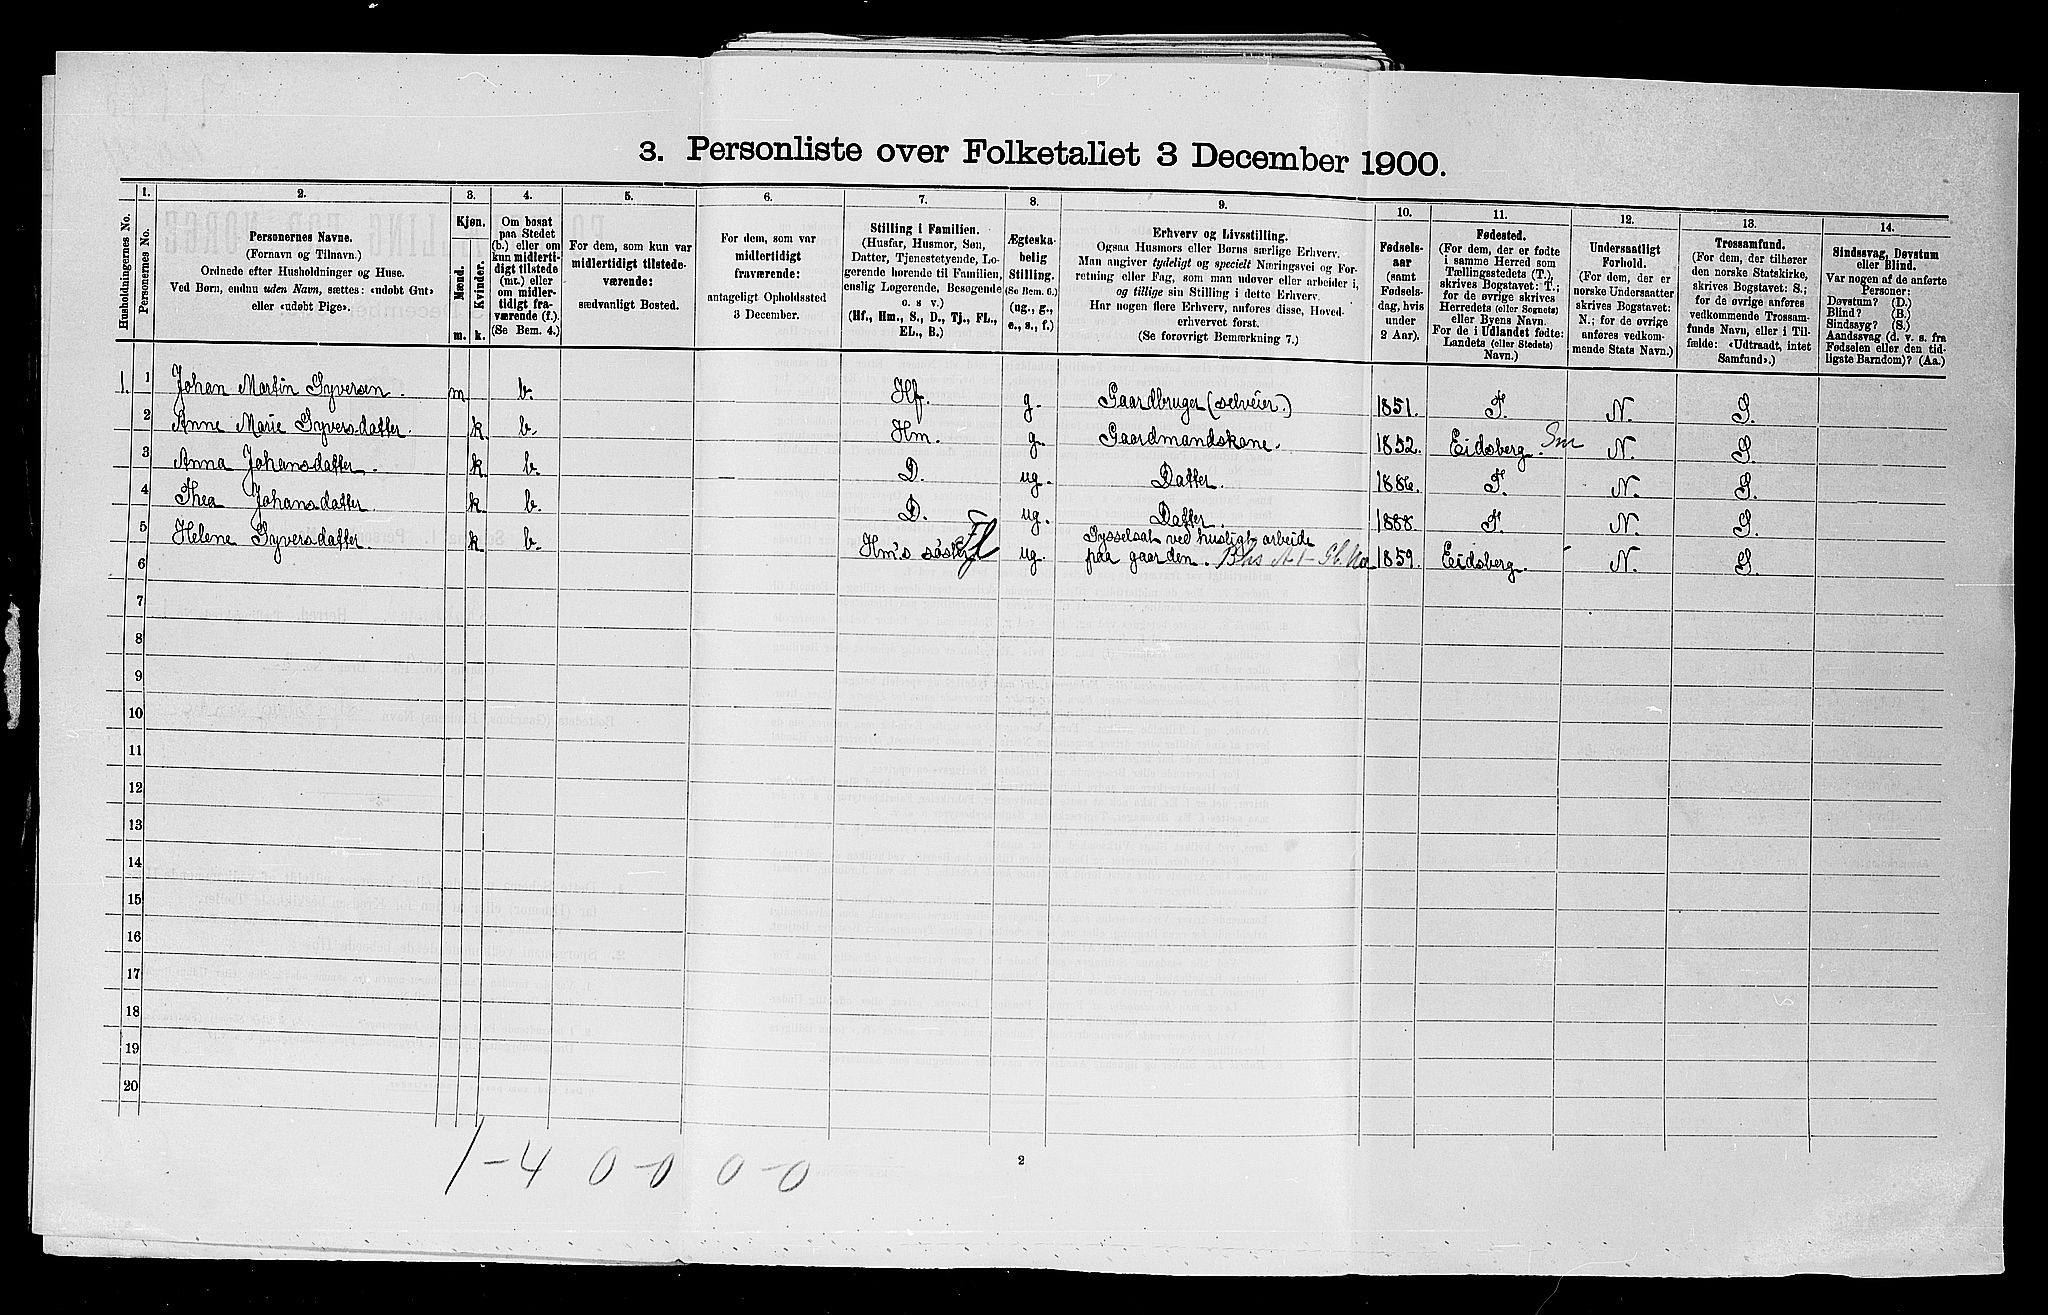 3. Personliste over Folketallet 3 December 1900.
1. 2. 3. 4. 5. 6. 7. 8. 9. 10. 11. 12. 13. 14.
Husholdningernes No.
Personernes No.
Personernes Navne.
(Fornavn og Tilnavn.)
Ordnede efter Husholdninger og Huse.
Ved Børn, endnu uden Navn, sættes: «udøbt Gut»
eller «udøbt Pige».
Kjøn.
Mænd.
Kvinder.
m. k.
Om bosat
paa Stedet
(b.) eller om
kun midlerti-
digt tilstede
(mt.) eller
om midler-
tidigt fra-
værende (f.).
(Se Bem. 4.)
For dem, som kun var
midlertidigt tilstede-
værende:
sædvanligt Bosted.
For dem, som var
midlertidigt
fraværende:
antageligt Opholdssted
3 December.
Stilling i Familien.
(Husfar, Husmor, Søn,
Datter, Tjenestetyende, Lo-
gerende hørende til Familien,
enslig Logerende, Besøgende
o. s v.)
(Hf., Hm., S., D., Tj., FL.,
EL., B.)
Ægteska-
belig
Stilling.
(Se Bem. 6.)
(ug., g.,
e., s., f.)
Erhverv og Livsstilling.
Ogsaa Husmors eller Børns særlige Erhverv.
Man angiver tydeligt og specielt Næringsvei og For-
retning eller Fag, som man udøver eller arbeider i,
og tillige sin Stilling i dette Erhverv.
Har nogen flere Erhverv, anføres disse, Hoved-
erhvervet først.
(Se forøvrigt Bemærkning 7.)
Fødsels-
aar
(samt
Fødsels-
dag, hvis
under
2 Aar).
Fødested.
(For dem, der er fødte
i samme Herred som
Tællingsstedets (T.),
skrives Bogstavet: T.;
for de øvrige skrives
Herredets (eller Sognets)
eller Byens Navn.
For de i Udlandet fødte:
Landets (eller Stedets)
Navn.)
Undersaatligt
Forhold.
(For dem, der er
norske Undersaatter
skrives Bogstavet:
N.; for de øvrige
anføres vedkom-
mende Stats Navn.)
Trossamfund.
(For dem, der tilhører
den norske Statskirke,
skrives Bogstavet: S.;
for de øvrige anføres
vedkommende Trossam-
funds Navn, eller i Til-
fælde: «Udtraadt, intet
Samfund».)
Sindssvag, Døvstum
eller Blind.
Var nogen af de anførte
Personer:
Døvstum? (D.)
Blind? (B.)
Sindssyg? (S.)
Aandssvag (d. v. s. fra
Fødselen eller den tid-
ligste Barndom)? (Aa.)
1. 1 Johan Martin Syversen. m b. Hf. g. Gaardbruger (selveier.) 1851. T. N. S.
2 Anne Marie Syversdatter. k b. Hm. g. Gaardmandskone. 1852. Eidsberg. Sm N. S.
3 Anna Johansdatter. k b. D. ug. Datter. 1886. T. N. S.
4 Thea Johansdatter k b. D. ug. Datter. 1888. T. N. S.
5 Helene Syversdatter. k b. Hm's søster Fl ug. Sysselsat ved husligt arbeide
paa gaarden. 1859. Eidsberg. N. S.
6
7
8
9
10
11
12
13
14
15
16
17
18
19
20
1-4 0-0 0-0
2